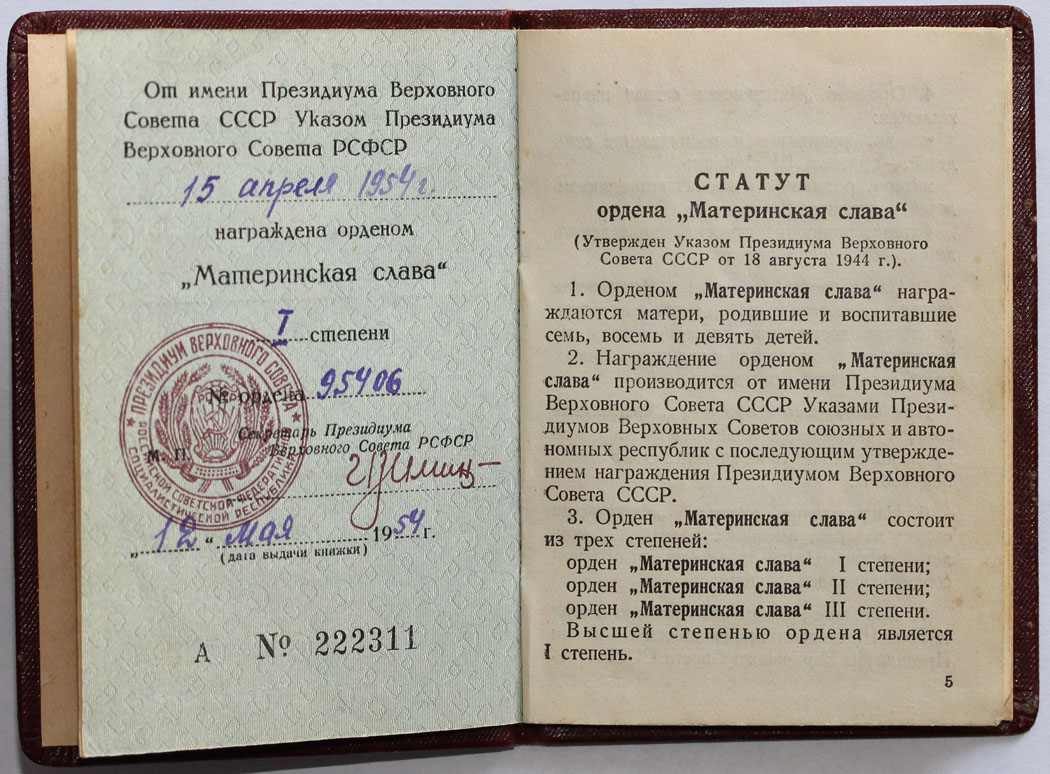 От имени Президиума Верховного
Совета СССР Указом Президиума
Верховного Совета РСФСР
15 апреля 1954 г.
награждена орденом
„Материнская слава“
I степени
№ ордена 95406
Секретарь Президиума
Верховного Совета РСФСР
М. П.
ПРЕЗИДИУМ ВЕРХОВНОГО СОВЕТА
РОССИЙСКОЙ СОВЕТСКОЙ ФЕДЕРАТИВНОЙ
СОЦИАЛИСТИЧЕСКОЙ РЕСПУБЛИКИ
„12“ мая 1954 г.
(дата выдачи книжки)
А № 222311
СТАТУТ
ордена „Материнская слава“
(Утвержден Указом Президиума Верховного
Совета СССР от 18 августа 1944 г.).
1. Орденом „Материнская слава“ награ-
ждаются матери, родившие и воспитавшие
семь, восемь и девять детей.
2. Награждение орденом „Материнская
слава“ производится от имени Президиума
Верховного Совета СССР Указами Прези-
диумов Верховных Советов союзных и авто-
номных республик с последующим утвержде-
нием награждения Президиумом Верховного
Совета СССР.
3. Орден „Материнская слава“ состоит
из трех степеней:
орден „Материнская слава“ I степени;
орден „Материнская слава“ II степени;
орден „Материнская слава“ III степени.
Высшей степенью ордена является
I степень.
5